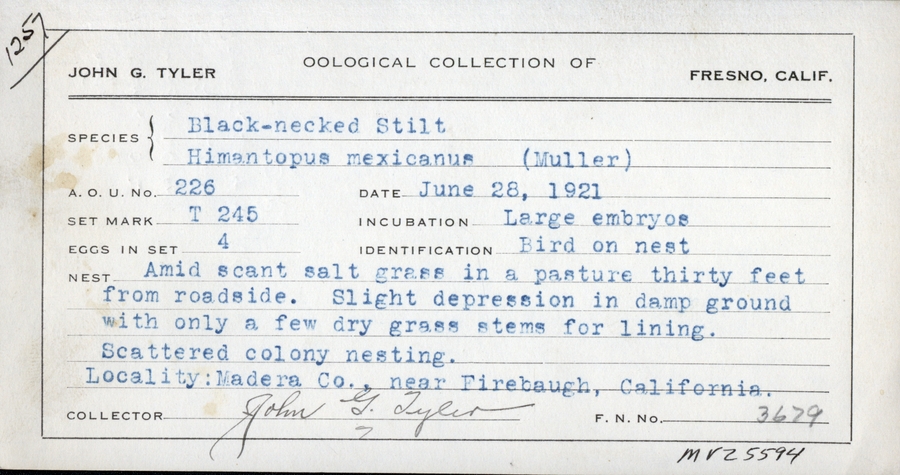 1257
OOLOGICAL COLLECTION OF
JOHN G. TYLER FRESNO, CALIF.
SPECIES { Black-necked Stilt
Himantopus mexicanus (Muller)
A. O. U. No. 226 DATE June 28, 1921
SET MARK T 245 INCUBATION Large embryos
EGGS IN SET 4 IDENTIFICATION Bird on nest
NEST Amid scant salt grass in a pasture thirty feet
from roadside. Slight depression in damp ground
with only a few dry grass stems for lining.
Scattered colony nesting.
Locality:Madera Co., near Firebaugh, California.
COLLECTOR John G. Tyler F. N. No. 3679
MVZ 5594